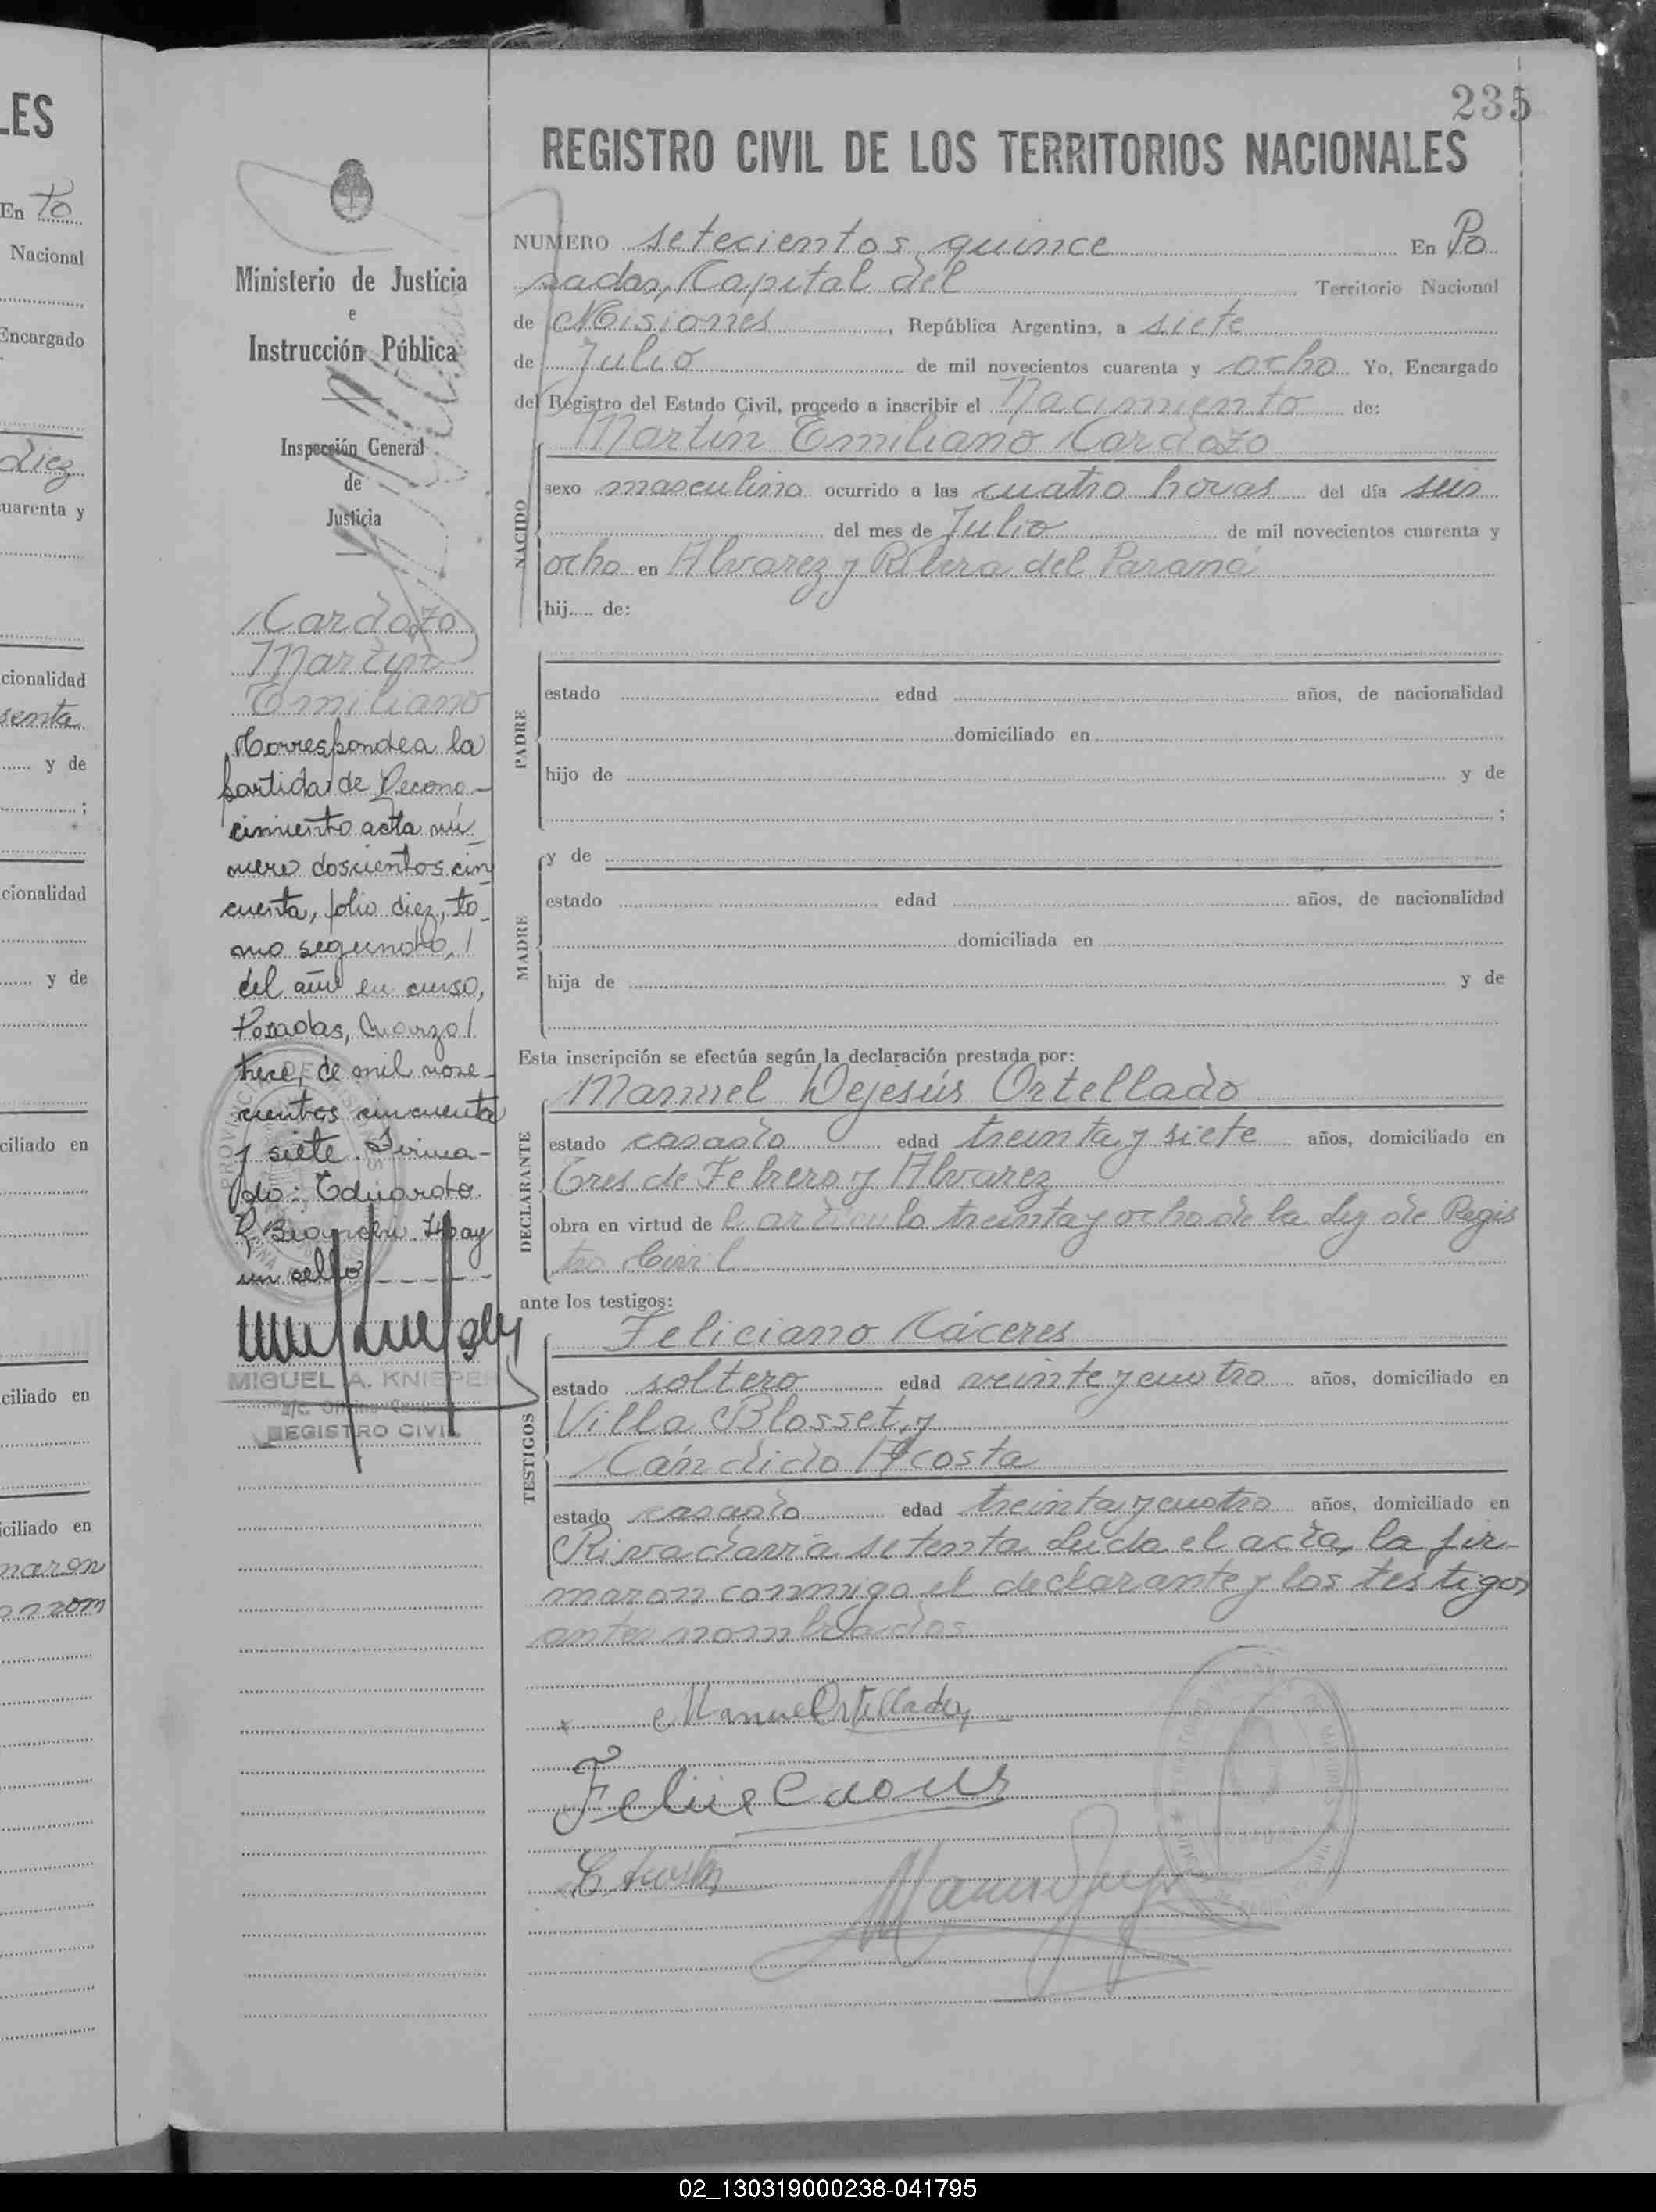 LES
En Po
Nacional
Encargado
diez
cuarenta y
cionalidad
senta
y de
;
cionalidad
y de
ciliado en
ciliado en
iciliado en
maron
Ministerio de Justicia
e
Instrucción Pública
Inspección General
de
Justicia
Cardozo
Martín
Emiliano
Corresponde a la
partida de Recono-
cimiento acta nú-
mero doscientos cin-
cuenta, folio diez, to-
mo segundo, /
del año en curso,
Posadas, Marzo /
trece, de mil nove-
cientos cincuenta
y siete. Firma-
do: Eduardo
R. Bianchi. Hay
un sello
MIGUEL A. KNIEPER
REGISTRO CIVIL
235
REGISTRO CIVIL DE LOS TERRITORIOS NACIONALES
NUMERO setecientos quince En Po
sadas, Capital del Territorio Nacional
de Misiones, República Argentina, a siete
de Julio de mil novecientos cuarenta y ocho Yo, Encargado
del Registro del Estado Civil, procedo a inscribir el Nacimiento de:
Martín Emiliano Cardozo
NACIDO
sexo masculino ocurrido a las cuatro horas del día seis
del mes de Julio de mil novecientos cuarenta y
ocho en Alvarez y Ribera del Paraná
hij..... de:
PADRE
estado edad años, de nacionalidad
domiciliado en
hijo de y de
;
MADRE
y de
estado edad años, de nacionalidad
domiciliada en
hija de y de
Esta inscripción se efectúa según la declaración prestada por:
Manuel Dejesús Ortellado
DECLARANTE
estado casado edad treinta y siete años, domiciliado en
Tres de Febrero y Alvarez
obra en virtud de l artículo treinta y ocho de la ley de Regis
tro Civil
ante los testigos:
Feliciano Cáceres
TESTIGOS
estado soltero edad veinte y cuatro años, domiciliado en
Villa Blosset, y
Cándido Acosta
estado casado edad treinta y cuatro años, domiciliado en
Rivadavia setenta. Leida el acta, la fir-
maron conmigo el declarante y los testigos
antes nombrados.
Manuel Ortellado
C Acosta
02_130319000238-041795